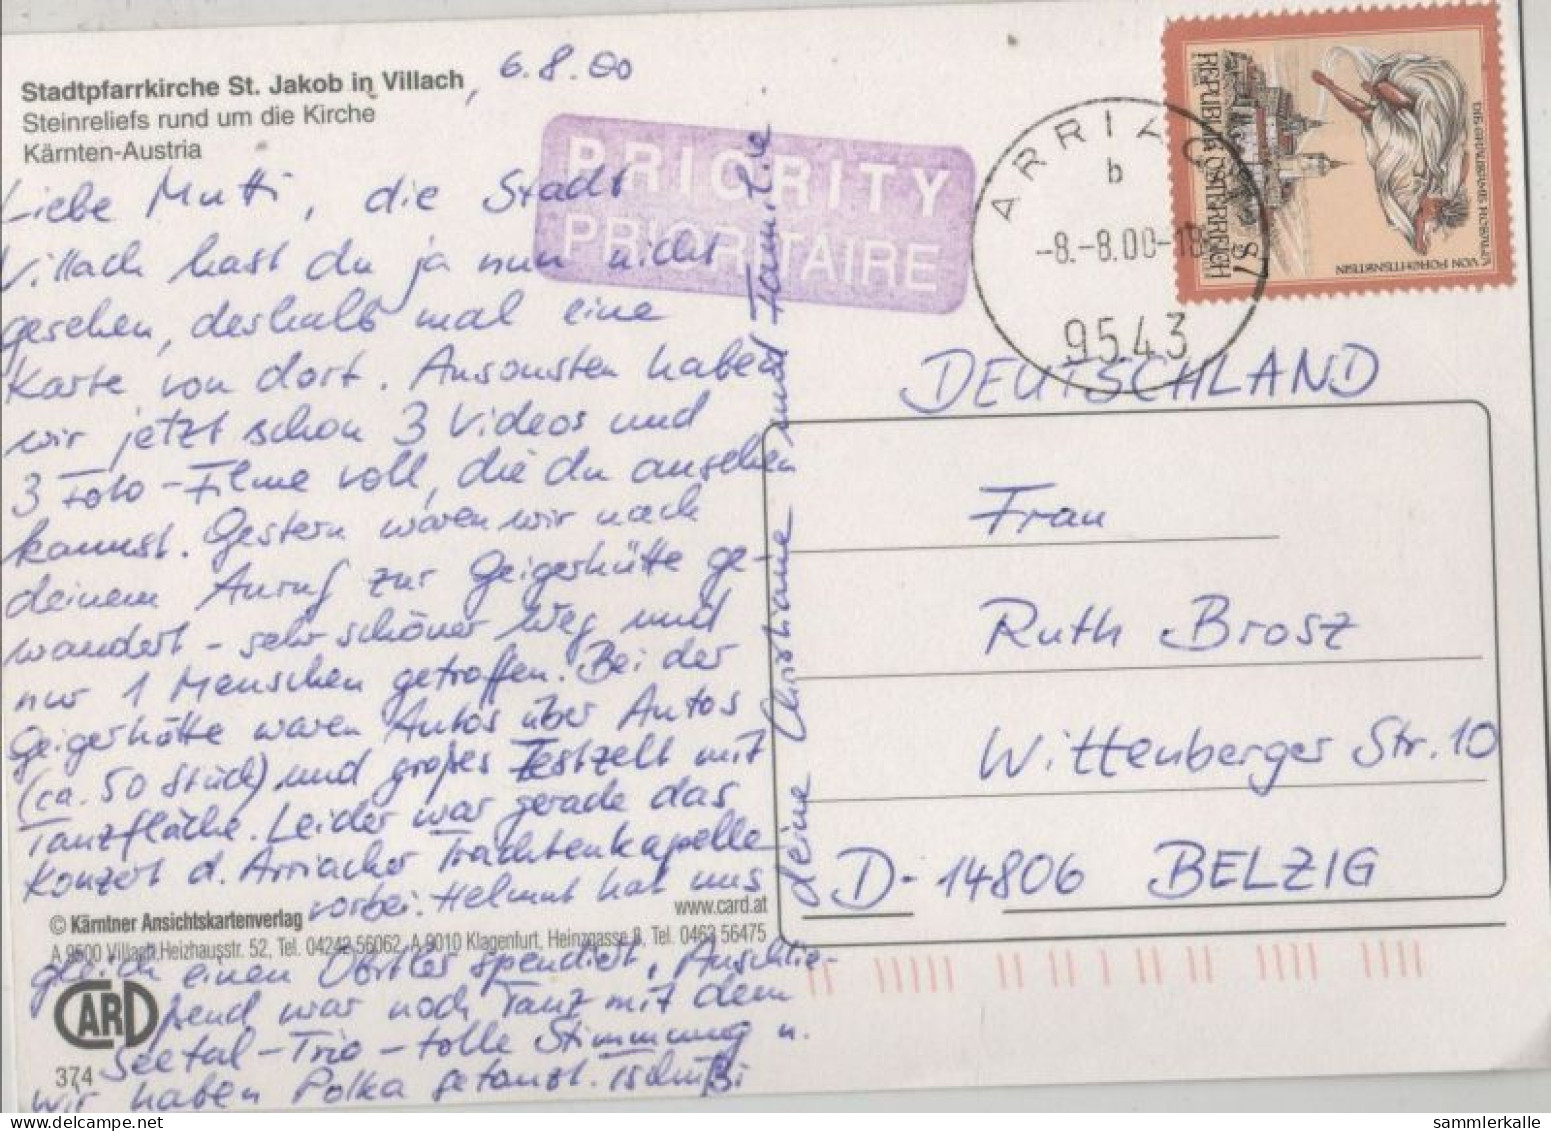 Stadtpfarrkirche St. Jakob in Villach, 6.8.00
Steinreliefs rund um die Kirche
Kärnten-Austria
PRIORITY
PRIORITAIRE
ARRIACH
b
-8.-8.00-18
9543
REPUBLIK ÖSTERREICH
S7
VON FORCHTENSTEIN
Liebe Mutti, die Stadt
Villach hast du ja nun nicht
gesehen, deshalb mal eine
Karte von dort. Ansonsten haben
wir jetzt schon 3 Videos und
3 Foto-Filme voll, die du ansehen
kannst. Gestern waren wir nach
deinem Anruf zur Geigerhütte ge-
wandert - sehr schöner Weg und
nur 1 Menschen getroffen. Bei der
Geigerhütte waren Autos über Autos
(ca. 50 Stück) und großes Festzelt mit
Tanzfläche. Leider war gerade das
Konzert d. Arriacher Trachtenkapelle
vorbei. Helmut hat uns
gleich einen Obstler spendiert. Anschlie-
ßend war noch Tanz mit dem
Seetal-Trio - tolle Stimmung u.
wir haben Polka getanzt. Tschüßi
deine Christiane und Familie
© Kärntner Ansichtskartenverlag
www.card.at
A 9500 Villach, Heizhausstr. 52, Tel. 04242 56062, A 9010 Klagenfurt, Heinzgasse 8, Tel. 0463 56475
CARD
374
DEUTSCHLAND
Frau
Ruth Brosz
Wittenberger Str. 10
D-14806 BELZIG
sammlerkalle
delcampe.net